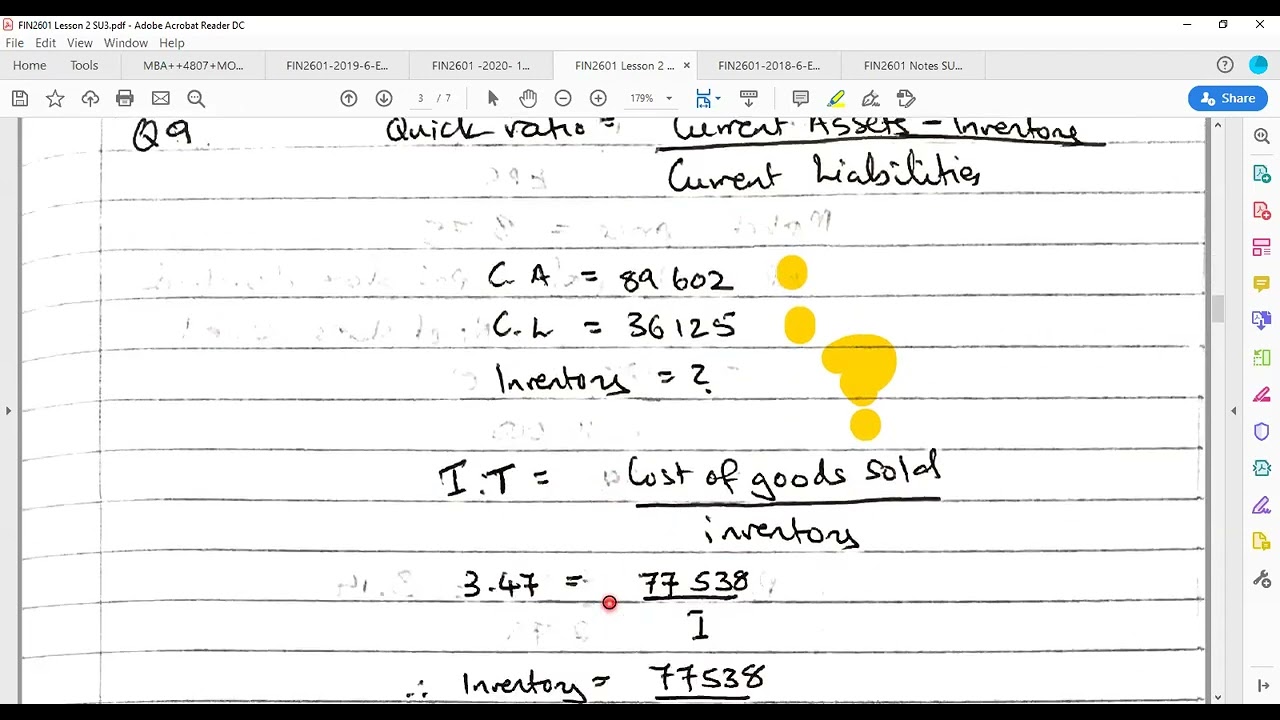 FIN2601 Lesson 2 SU3.pdf - Adobe Acrobat Reader DC
File Edit View Window Help
Home Tools MBA++4807+MO... FIN2601-2019-6-E... FIN2601 -2020- 1... FIN2601 Lesson 2 ... × FIN2601-2018-6-E... FIN2601 Notes SU...
3 / 7 179% Share
Q9. Quick ratio = Current Assets - Inventory
Current Liabilities
C.A = 89 602
C.L = 36 125
Inventory = ?
I.T = Cost of goods sold
inventory
3.47 = 77 538
I
∴ Inventory = 77538